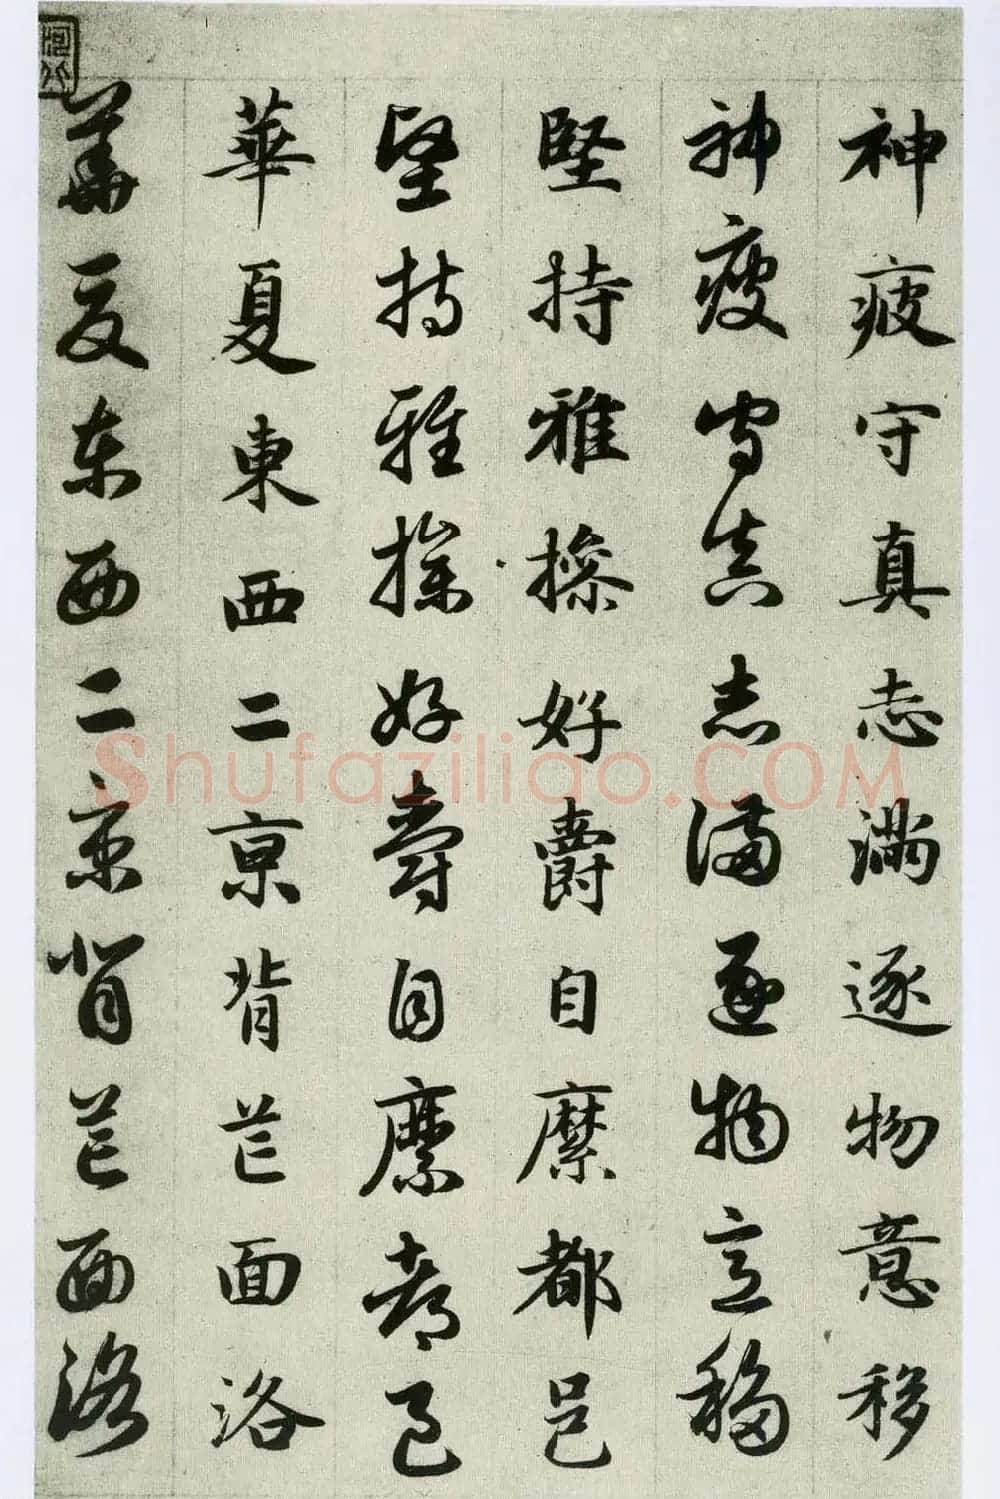 神疲守真志滿逐物意移
神疲守真志滿逐物意移
堅持雅操好爵自縻都邑
堅持雅操好爵自縻都邑
華夏東西二京背芒面洛
華夏東西二京背芒面洛
Shufaziliao.COM